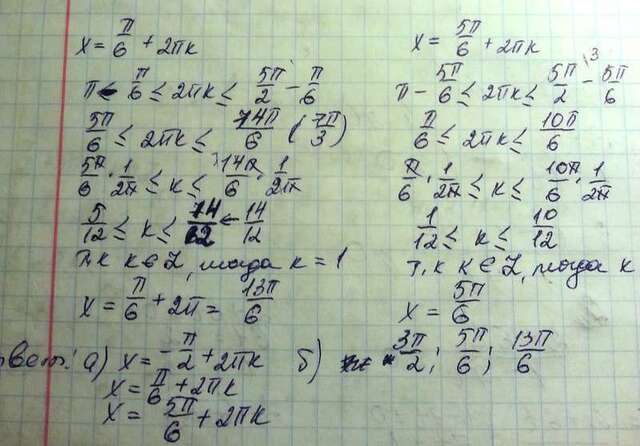 x = π/6 + 2πk
π - π/6 ≤ 2πk ≤ 5π/2 - π/6
5π/6 ≤ 2πk ≤ 14π/6 (7π/3)
5π/6 · 1/2π ≤ k ≤ 14π/6 · 1/2π
5/12 ≤ k ≤ 14/12 ← 14/12
т.к k ∈ Z, тогда k = 1
x = π/6 + 2π = 13π/6
x = 5π/6 + 2πk
π - 5π/6 ≤ 2πk ≤ 5π/2 \3 - 5π/6
π/6 ≤ 2πk ≤ 10π/6
π/6 · 1/2π ≤ k ≤ 10π/6 · 1/2π
1/12 ≤ k ≤ 10/12
т.к k ∈ Z, тогда k
x = 5π/6
вет: а) x = -π/2 + 2πk б) 3π/2 ; 5π/6 ; 13π/6
x = π/6 + 2πk
x = 5π/6 + 2πk